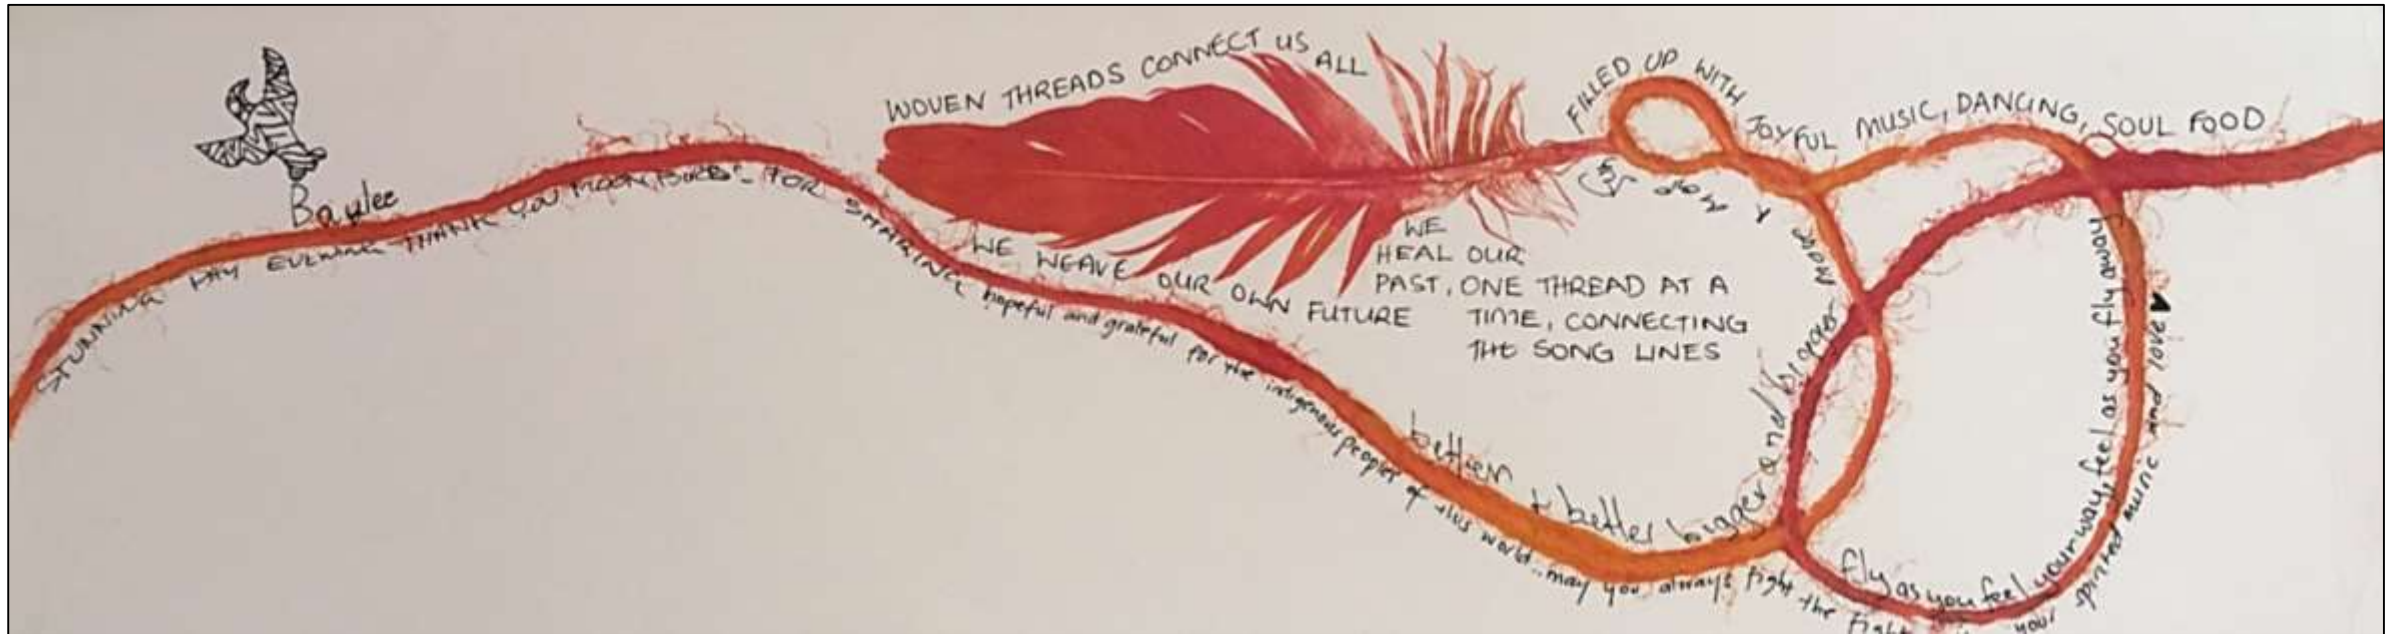 WOVEN THREADS CONNECT US ALL
FILLED UP WITH JOYFUL MUSIC, DANCING, SOUL FOOD
Baylee
STUNNING DAY EVENING THANK YOU MOON BIRDS FOR SHARING
WE WEAVE OUR OWN FUTURE
WE
HEAL OUR
PAST, ONE THREAD AT A
TIME, CONNECTING
THE SONG LINES
hopeful and grateful for the indigenous peoples of this world.. may you always fight the fight your spirited music and love
better & better bigger and bigger
fly as you feel your way, feel as you fly away